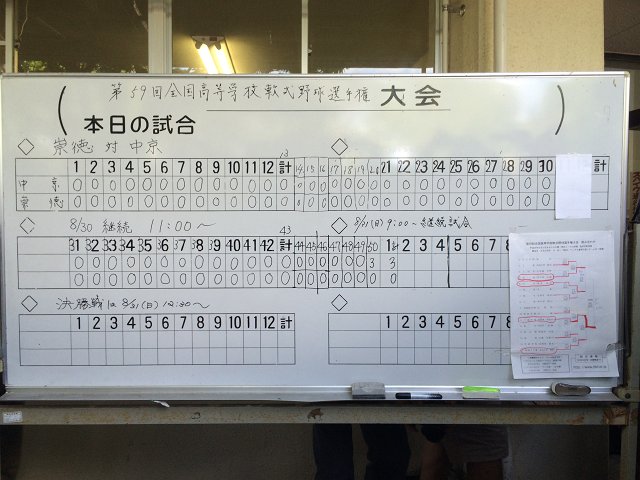 第59回全国高等学校軟式野球選手権 大会
本日の試合
崇徳 対 中京
1 2 3 4 5 6 7 8 9 10 11 12 計 14 15 16 17 18 19 20 21 22 23 24 25 26 27 28 29 30 計
13
中京 0 0 0 0 0 0 0 0 0 0 0 0 0 0 0 0 0 0 0 0 0 0 0 0 0 0 0 0 0 0
崇徳 0 0 0 0 0 0 0 0 0 0 0 0 0 0 0 0 0 0 0 0 0 0 0 0 0 0 0 0 0 0
8/30 継続 11:00〜
8/31(日)9:00〜継続試合
31 32 33 34 35 36 37 38 39 40 41 42 計 44 45 46 47 48 49 50 1 2 3 4 5 6 7
43
0 0 0 0 0 0 0 0 0 0 0 0 0 0 0 0 0 0 0 3 3
0 0 0 0 0 0 0 0 0 0 0 0 0 0 0 0 0 0 0 0 0
決勝戦は 8/31(日)12:30〜
1 2 3 4 5 6 7 8 9 10 11 12 計
1 2 3 4 5 6 7 8